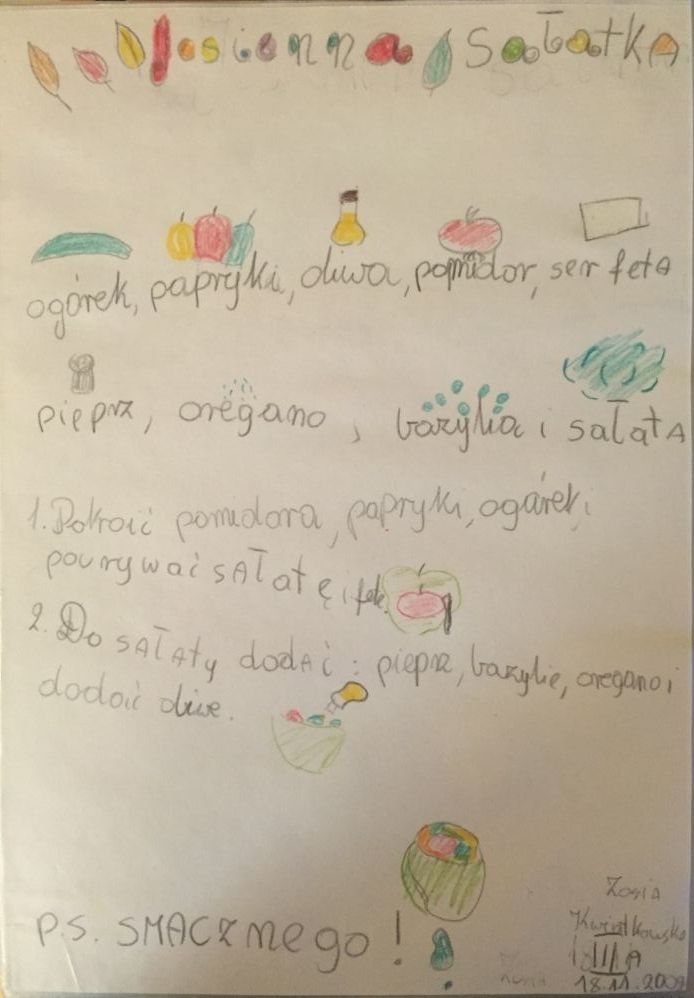 Jesienna SałatkA
ogórek, papryki, oliwa, pomidor, ser fetA
pieprz, oregano, bazylia i sałatA
1. Pokroić pomidora, papryki, ogórek i
pourywać sAłatę i fetę.
2. Do sAłAty dodAć: pieprz, bazylię, oregano i
dodać oliwę.
P.S. SMACZnego!
ZosiA
Kwiatkowska
III A
18.11.2009